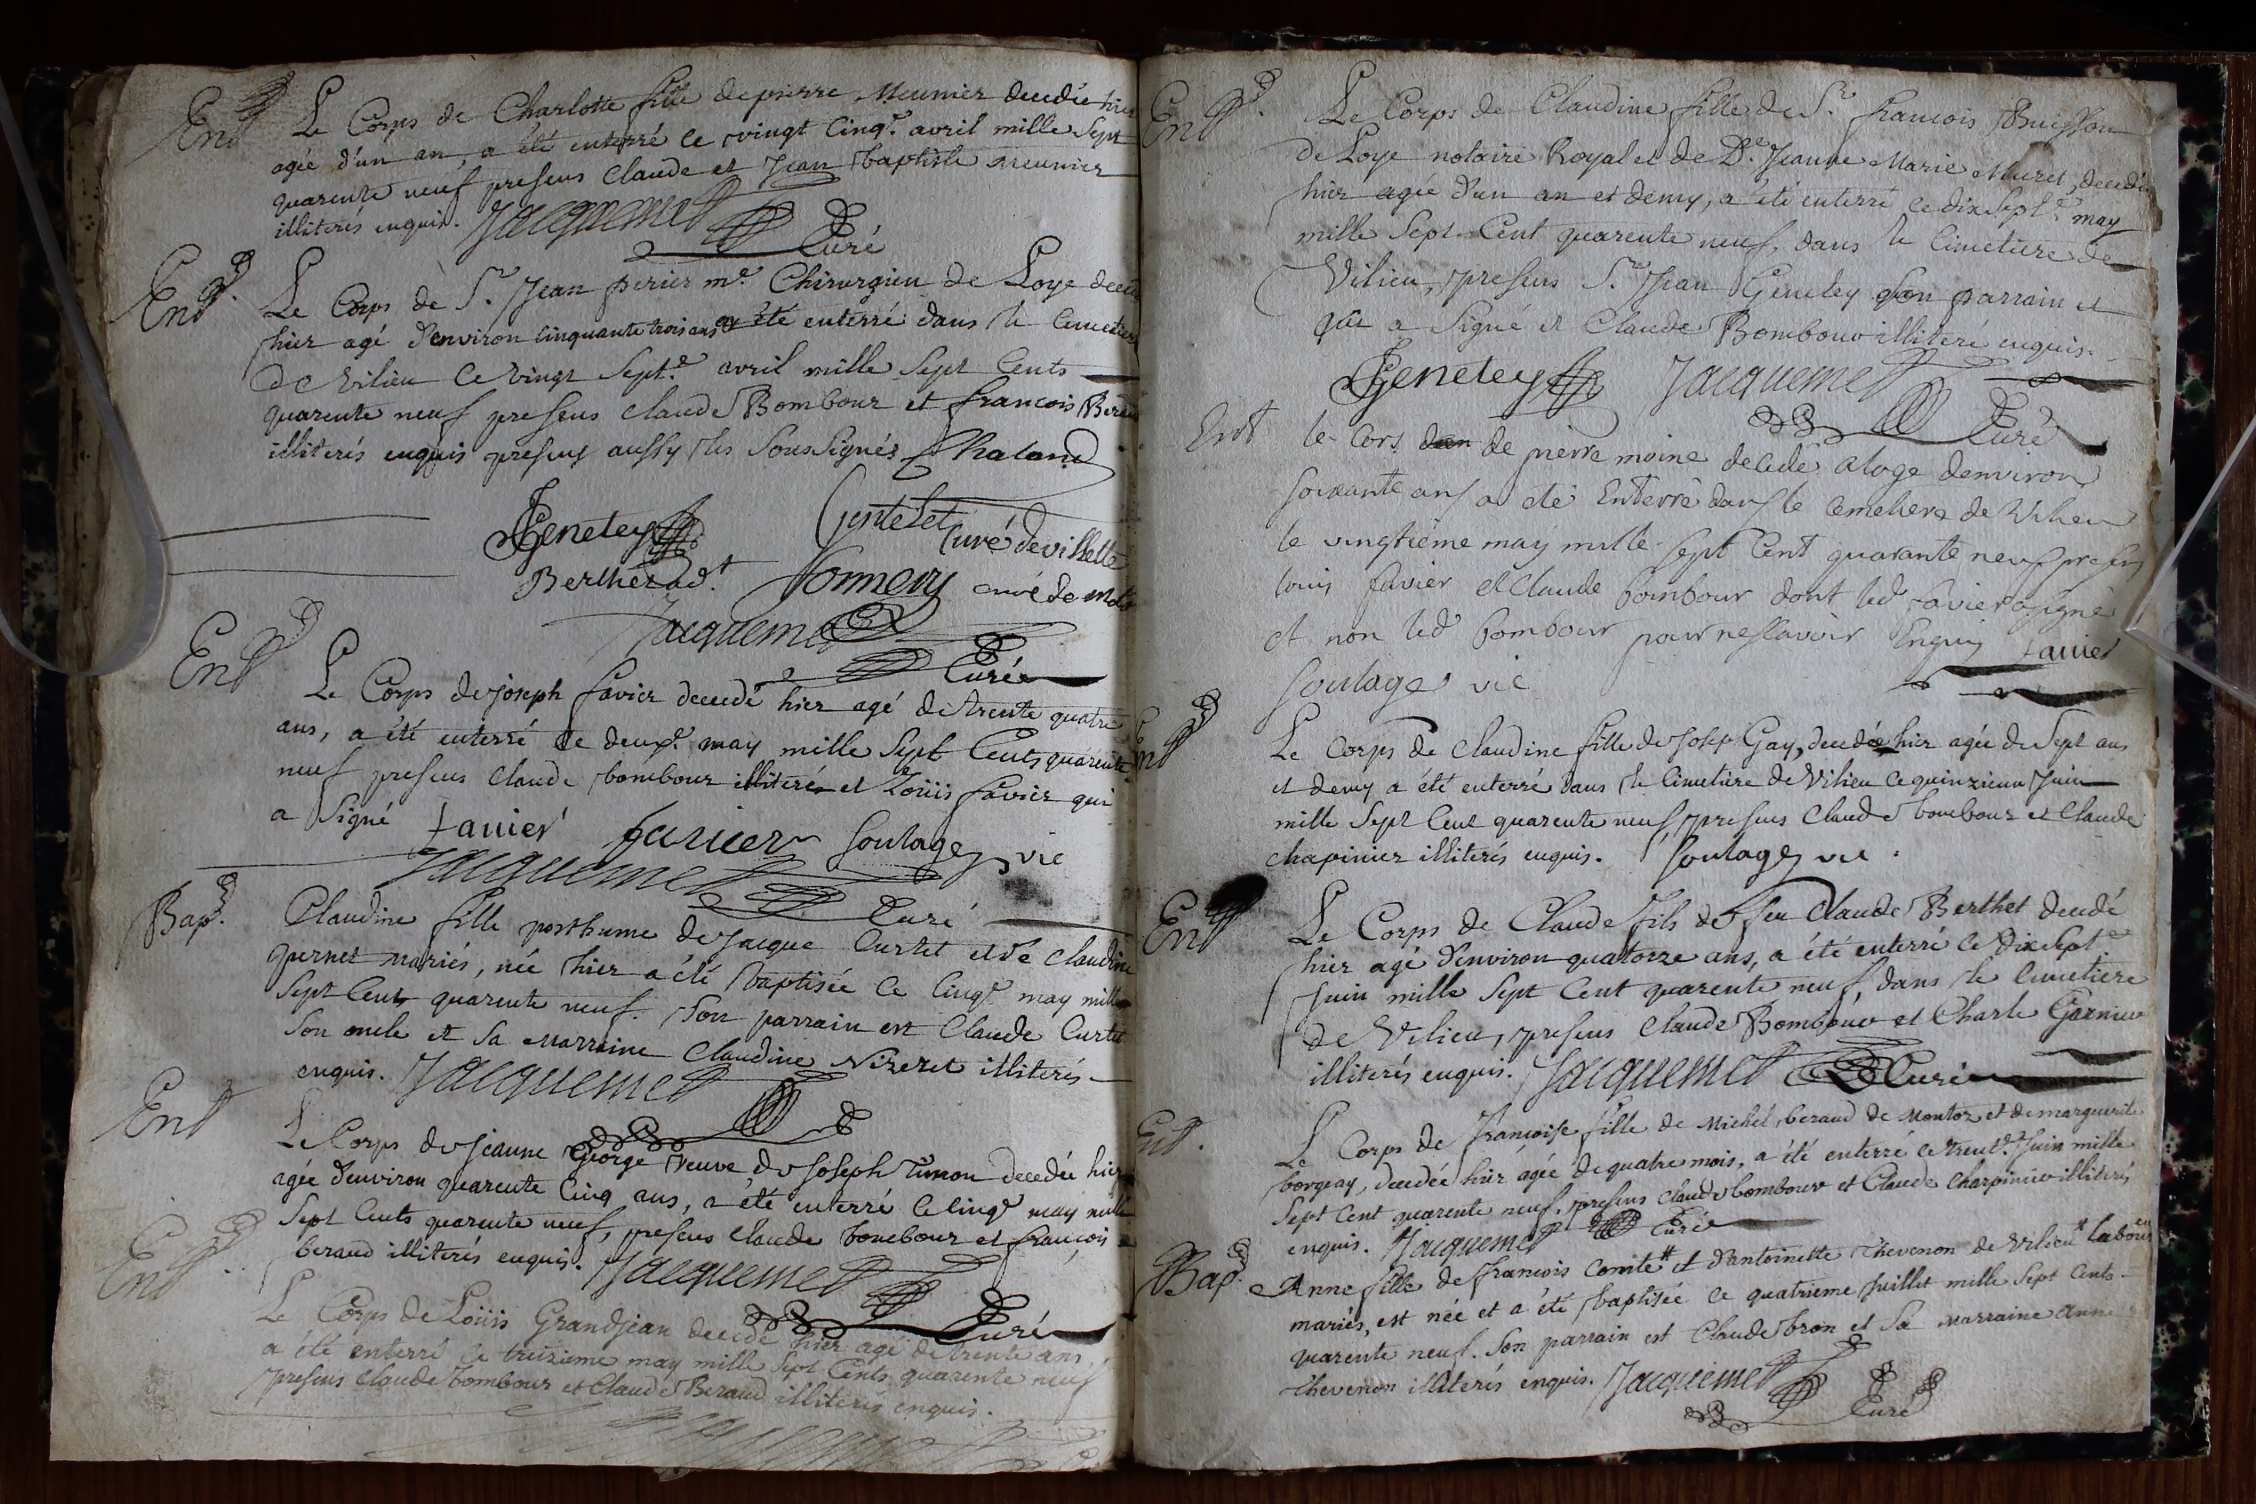 Ent
Le Corps de Charlotte fille de pierre Meunier decedée hier
agée d'un an, a été enterré ce vingt cinq.e avril mille sept
quarente neuf presens Claude et Jean baptiste Meunier
illiterés enquis. Jacquemet
Curé
Ent
Le Corps de S.r Jean perier m.e Chirurgien de Loye decedé
hier agé d'environ cinquante trois ans a été enterré dans le Cimetiere
de Vilieu ce vingt sept.e avril mille sept Cents
quarente neuf presens Claude Bombour et francois Beraud
illiterés enquis presens aussy les soussignés Chaland
Genetey Gentelet
Curé de villette
Berthet ad.t curé de
Jacquemet
Curé
Ent
Le Corps de joseph favier decedé hier agé de trente quatre
ans, a été enterré le deux.e may mille sept Cents quarente
neuf presens Claude bombour illiteré et Loüis favier qui
a signé favier favier soulages vic
Jacquemet
Curé
Bap.
Claudine fille posthume de Jacque Curtet et de Claudine
pernet mariés, née hier a été baptisée ce cinq.e may mille
sept Cents quarente neuf. son parrain est Claude Curtet
son oncle et sa marraine Claudine Nizeret illiterés
enquis. Jacquemet
Ent
Le Corps de Jeanne George veuve de Joseph Timon decedée hier
agée d'environ quarente cinq ans, a été enterré le cinq.e may mille
sept Cents quarente neuf, presens Claude bombour et françois
beraud illiterés enquis. Jacquemet
Curé
Ent
Le Corps de Loüis Grandjean decedé hier agé de trente ans,
a été enterré le treizieme may mille sept Cents quarente neuf
presens Claude bombour et Claude Beraud illiterés enquis.
Ent
Le Corps de Claudine fille de S.r francois Buisson
de Loye notaire Royal et de D.e Jeanne Marie Muret, decedée
hier agée d'un an et demy, a été enterré ce dix sept.e may
mille sept Cent quarente neuf, dans le Cimetiere de
Vilieu, presens S.r Jean Genetey son parrain et
qui a signé et Claude Bombour illiteré enquis.
Genetey Jacquemet
Curé
Ent
le cors de pierre moine decedé aloge denviron
soixante ans a été Enterré dans le cemetiere de vilieu
le vingtième may mille sept Cent quarante neuf presens
louis favier et Claude bombour dont led favier a signé
et non led bombour pour ne scavoir Enquis favier
soulages vic
Ent
Le Corps de Claudine fille de Josep Gay, decedée hier agée de sept ans
et demy a été enterré dans le Cimetiere de Vilieu ce quinzieme Juin
mille sept Cent quarente neuf, presens Claude bombour et Claude
chapinier illiterés enquis. soulages vic.
Ent
Le Corps de Claude fils de feu Claude Berthet decedé
hier agé d'environ quatorze ans, a été enterré ce dix sept.e
Juin mille sept Cent quarente neuf, dans le Cimetiere
de Vilieu, presens Claude Bombour et Charle Garnier
illiterés enquis. Jacquemet Curé
Ent.
Le Corps de Françoise fille de Michel beraud de Montoz et de marguerite
borgeay, decedée hier agée de quatre mois, a été enterré ce trent.e Juin mille
sept Cent quarente neuf, presens Claude bombour et Claude Charpinier illiterés
enquis. Jacquemet Curé
Bap.
Anne fille de François Comte # et d'antoinette Thevenon de Vilieu # laboureur
mariés, est née et a été baptisée ce quatrieme Juillet mille sept Cents
quarente neuf. Son parrain est Claude bron et sa marraine anne
Thevenon illiterés enquis. Jacquemet
Curé